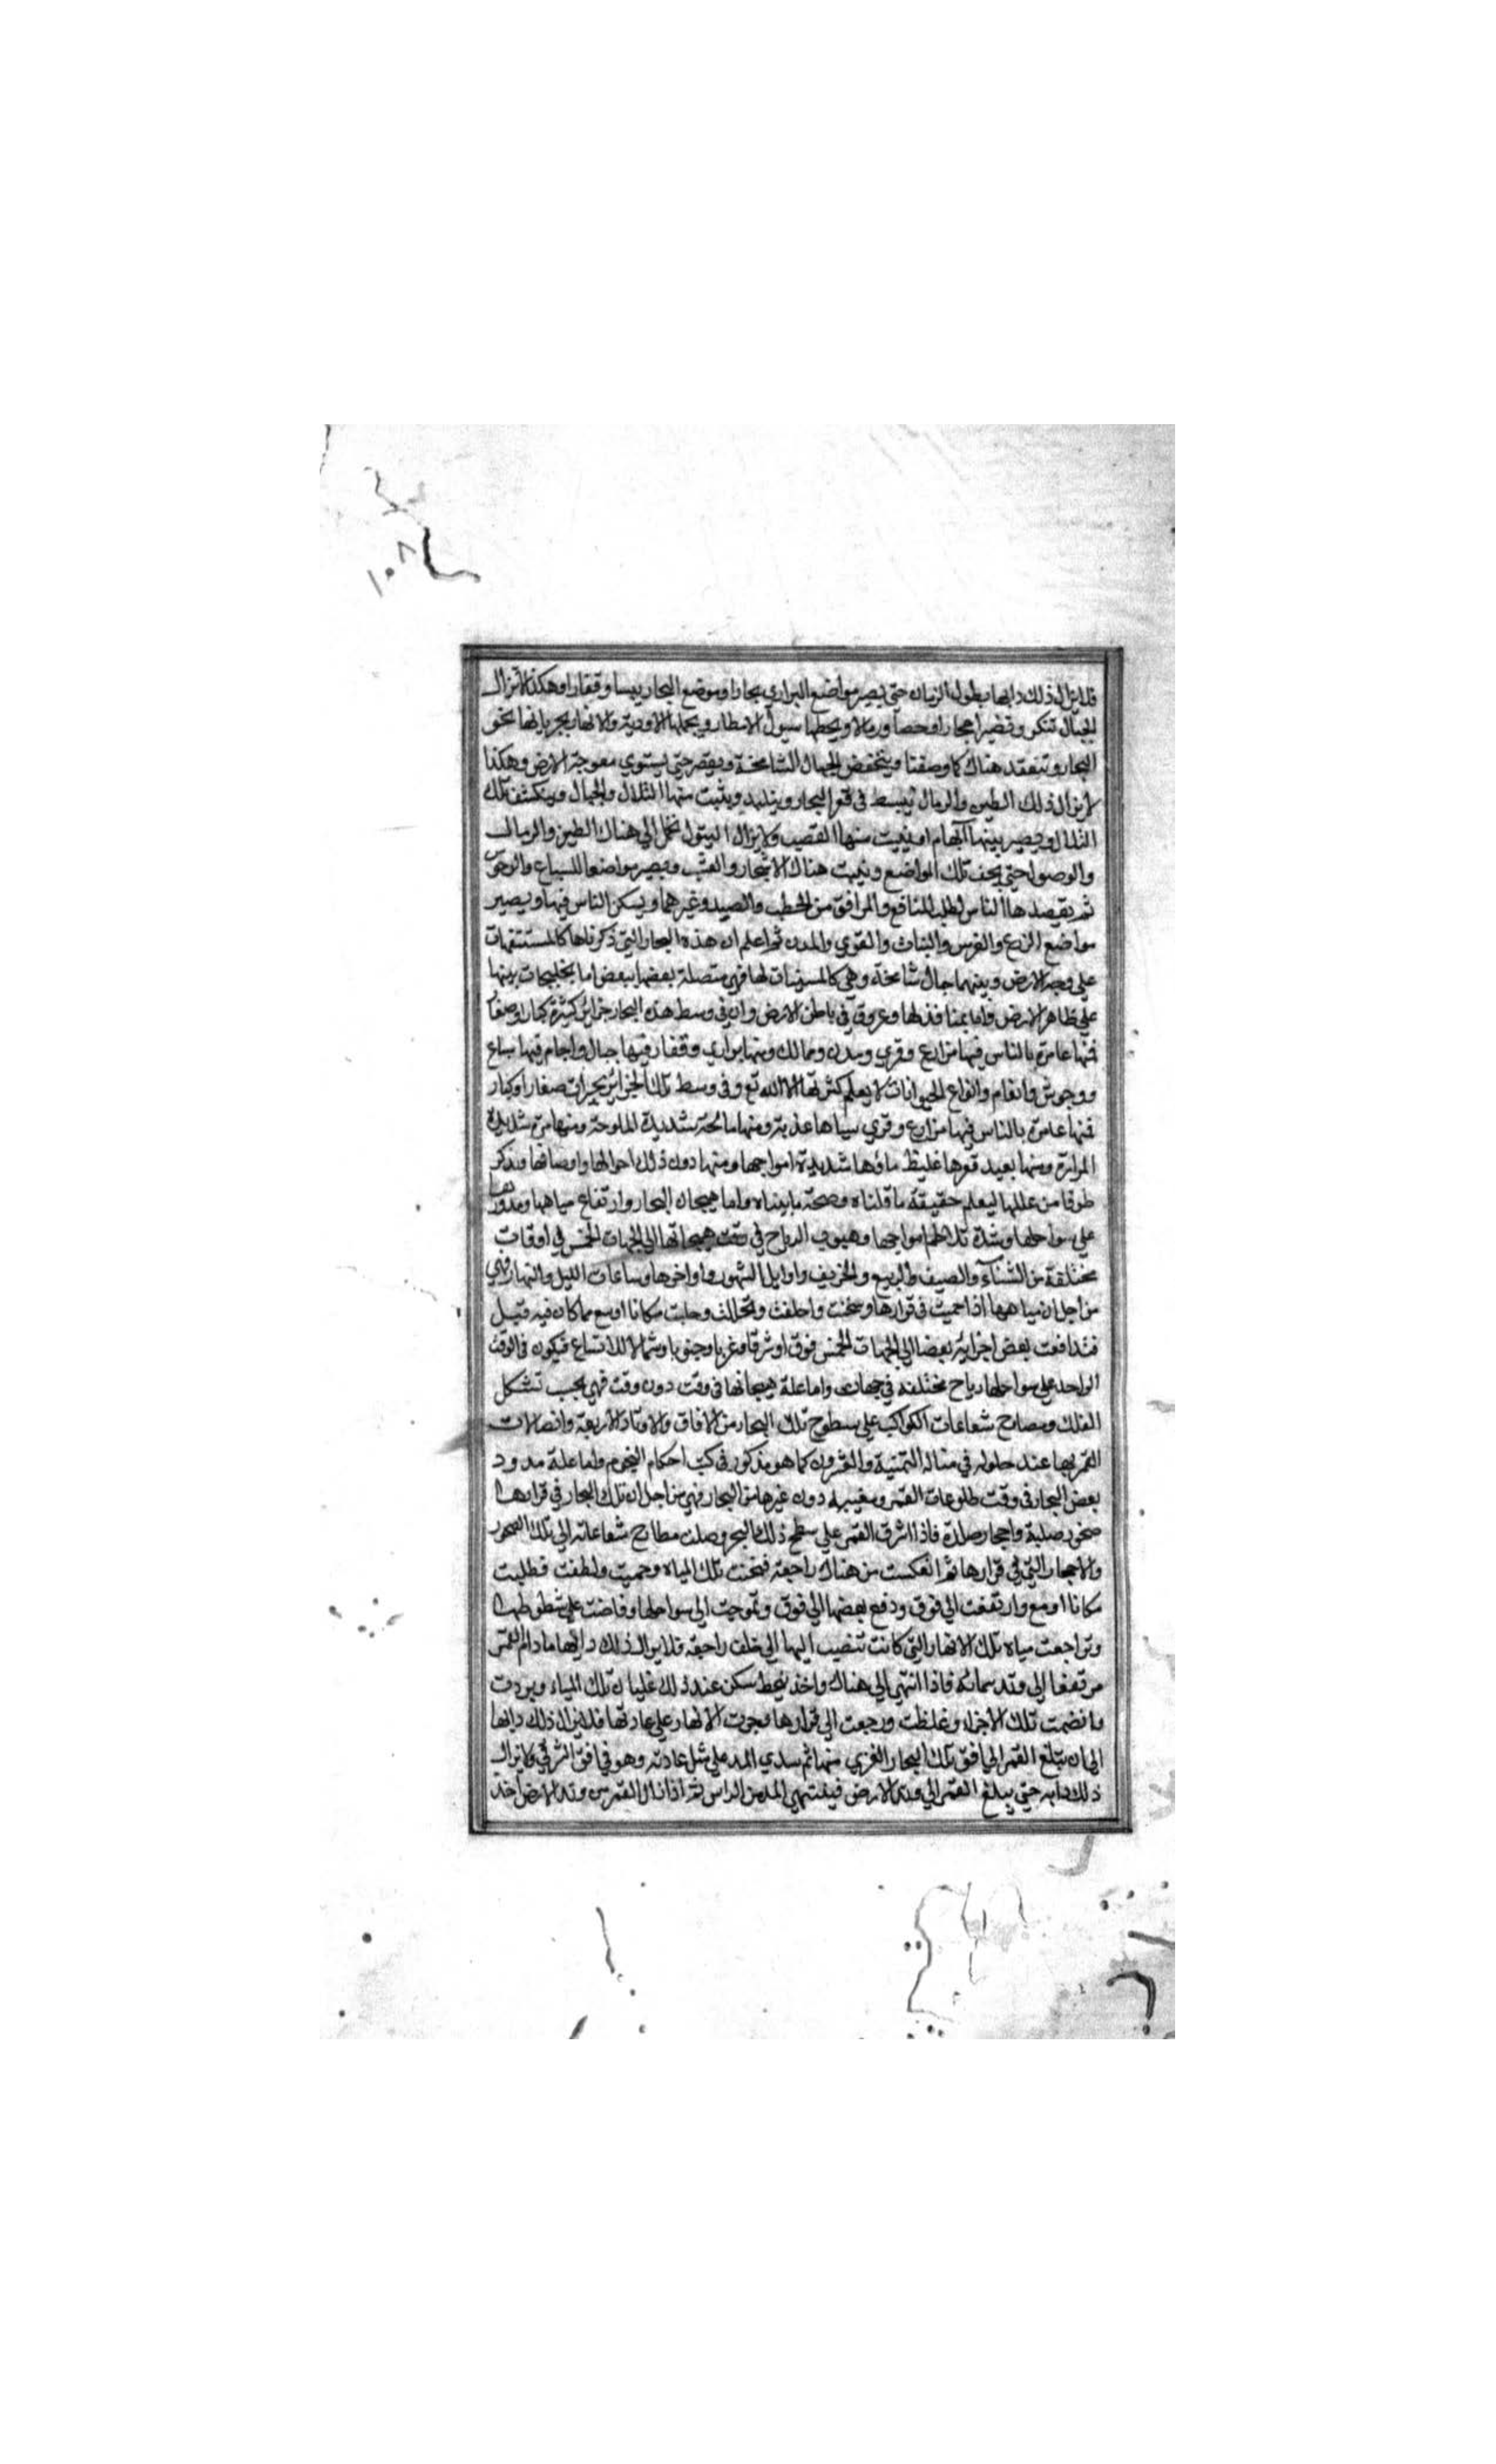 ١٠٨
فلا يزال ذلك دابها بطول الزمان حتى يصير مواضع البراري بحارا وموضع البحار يبسا وقفارا وهكذا لا تزال
الجبال تنكسر وتصير احجارا وحصا ورمالا ويحطها سيول الامطار ويحملها الاودية والانهار بجريانها نحو
البحار وتنعقد هناك كما وصفنا وينخفض الجبال الشامخة ويقصر حتى يستوي مع وجه الارض وهكذا
لا يزال ذلك الطين والرمال يبسط في قعر البحار ويتلبد وينبت منها التلال والجبال وينكشف تلك
التلال ويصير بينها وينبت منها القصب ولا يزال السيول تحمل الى هناك الطين والرمال
والوصول حتى يجف تلك المواضع وينبت هناك الاشجار والعشب ويصير مواضعا للسباع والوحوش
ثم يقصدها الناس لطلب المنافع والمرافق من الحطب والصيد وغيرهما ويسكن الناس فيها ويصير
مواضع الزرع والغرس والنبات والقري والمدن ثم اعلم ان هذه البحار التي ذكرناها كالمستنقعات
على وجه الارض وبينهما جبال شامخة وهي كالمسنيات لها فهي متصلة بعضها ببعض اما بخليجات بينها
على ظاهر الارض واما بمنافذ لها وعروق في باطن الارض وان في وسط هذه البحار جزائر كثيرة كبارا وصغارا
فمنها عامرة بالناس فيها مزارع وقري ومدن وممالك ومنها براري وقفار فيها جبال واجام فيها سباع
ووحوش وانعام وانواع الحيوانات لا يعلم كثرتها الا الله تع وفي وسط تلك الجزائر بحيرات صغار وكبار
فمنها عامرة بالناس فيها مزارع وقري مياهها عذبة ومنها مالحة شديدة الملوحة ومنها مرة شديدة
المرارة ومنها بعيد قعرها غليظ ماؤها شديدة امواجها ومنها دون ذلك احوالها واوصافها ونذكر
طرفا من عللها ليعلم حقيقة ما قلناه وصحة ما بيناه واما هيجان البحار وارتفاع مياهها ومدودها
على سواحلها وشدة تلاطم امواجها وهبوب الرياح في وقت هيجانها الى الجهات الخمس في اوقات
مختلفة من الشتاء والصيف والربيع والخريف واوايل الشهور واواخرها وساعات الليل والنهار فهي
من اجل ان مياهها اذا حميت في قرارها وسخنت ولطفت وتحللت وطلبت مكانا اوسع مما كان فيه قبل
فتدافعت بعض اجزائه بعضا الى الجهات الخمس فوق او شرقا وغربا وجنوبا وشمالا للاتساع فيكون في الوقت
الواحد على سواحلها رياح مختلفة في جهات واما علة هيجانها في وقت دون وقت فهي بحسب تشكل
الفلك ومطارح شعاعات الكواكب على سطوح تلك البحار من الافاق والاوتاد الاربعة واتصالات
القمر بها عند حلوله في منازله الثمنية والعشرون كما هو مذكور في كتب احكام النجوم واما علة مدود
بعض البحار في وقت طلوعات القمر ومغيبه دون غيرها من البحار فهي من اجل ان تلك البحار في قرارها
صخور صلبة واحجار صلدة فاذا اشرق القمر على سطح ذلك البحر وصلت مطارح شعاعاته الى تلك الصخور
والاحجار التي في قرارها ثم انعكست من هناك راجعة فسخنت تلك المياه وحميت ولطفت فطلبت
مكانا اوسع وارتفعت الى فوق ودفع بعضها الى فوق وتموجت الى سواحلها وفاضت على شطوطها
وتراجعت مياه تلك الانهار التي كانت تنصب اليها الى خلف راجعة فلا يزال ذلك دابها ما دام القمر
مرتفعا الى وتد سمائه فاذا انتهى الى هناك واخذ ينحط سكن عند ذلك غليان تلك المياه وبردت
وانضمت تلك الاجزاء وغلظت ورجعت الى قرارها وجرت الانهار على عادتها فلا يزال ذلك دابها
الى ان يبلغ القمر الى افق تلك البحار الغربي منها ثم يبتدي المد على مثل عادته وهو في افق الشرقي ولا يزال
ذلك دابه حتى يبلغ القمر الى وتد الارض فينتهي المد من الراس ثم اذا زال القمر من وتد الارض اخذ